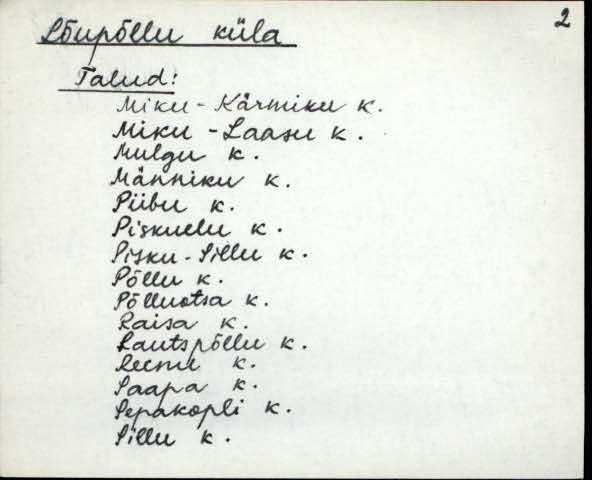 2
Lõupõllu küla
Talud:
Miku - Kärmiku k.
Miku - Laasu k.
Mulgu k.
Männiku k.
Piibu k.
Piskuelu k.
Pisku - Sillu k.
Põllu k.
Põlluotsa k.
Raisa k.
Rautspõllu k.
k.
Saapa k.
Sepakopli k.
Sillu k.